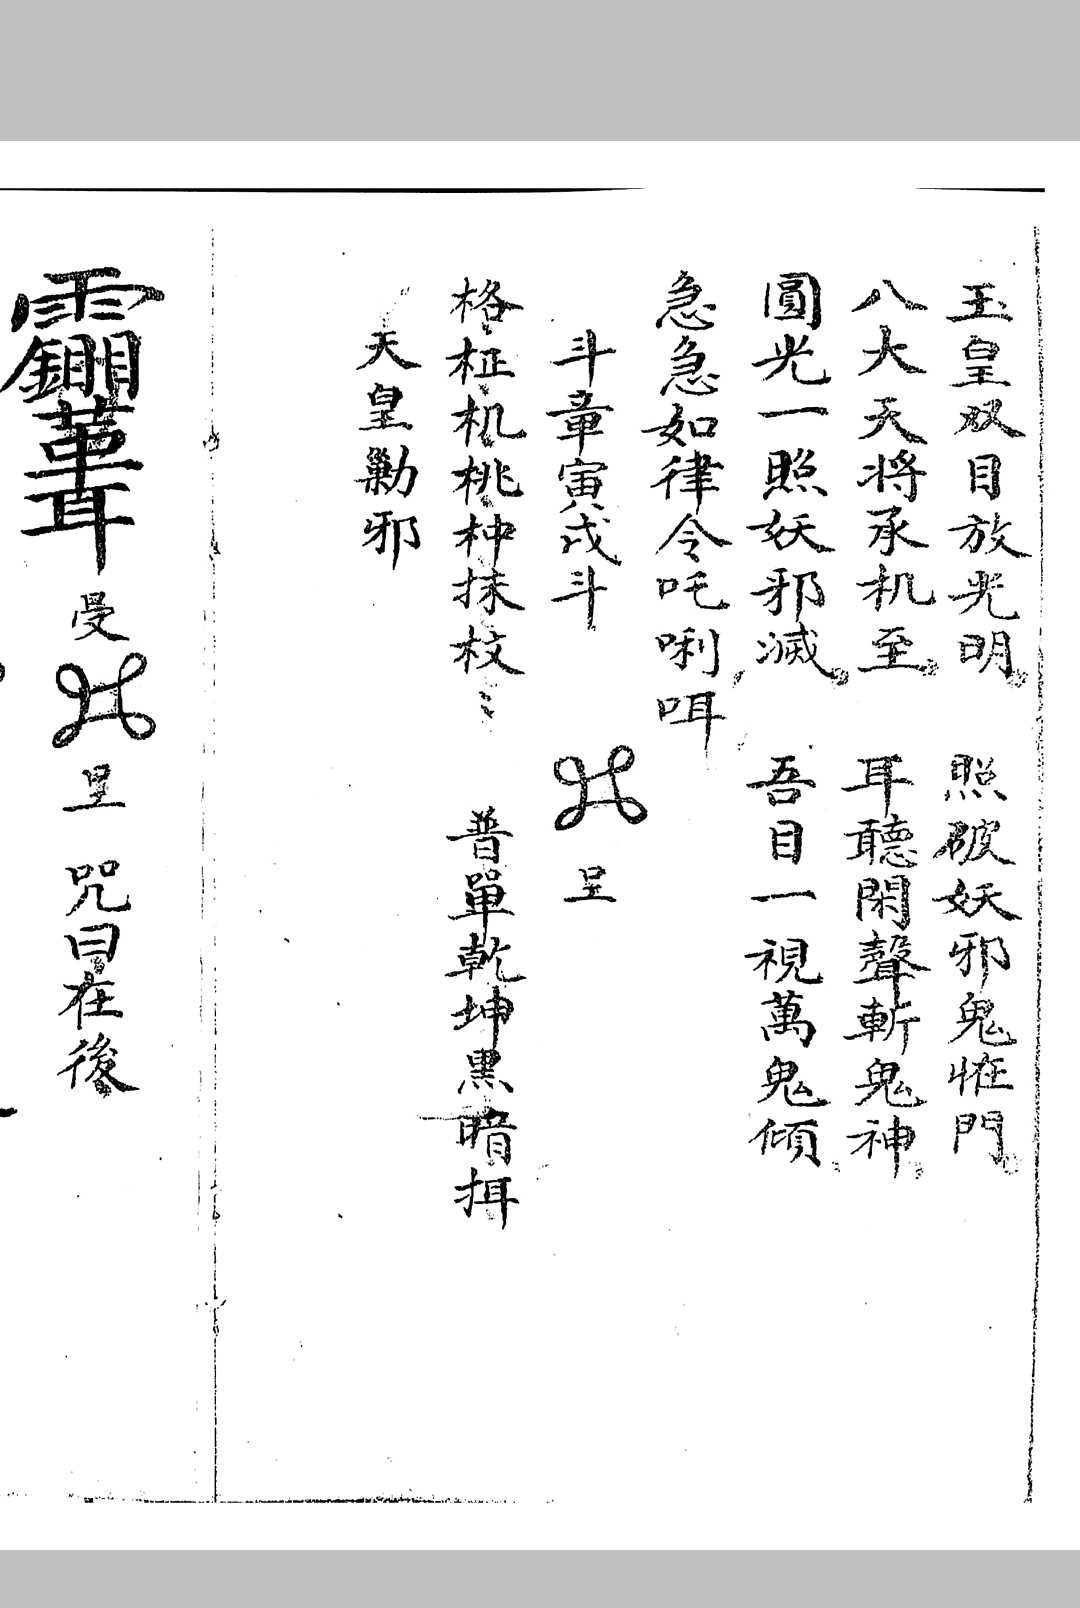 玉皇双目放光明 照破妖邪鬼怪門
八大天将承机至 耳聽閑聲斬鬼神
圓光一照妖邪滅 吾目一視萬鬼傾
急急如律令吒唎咡
斗章寅戌斗 呈
格柾机桃种抹枚 普單乾坤黑暗揖
天皇勦邪
受 呈 咒曰在後